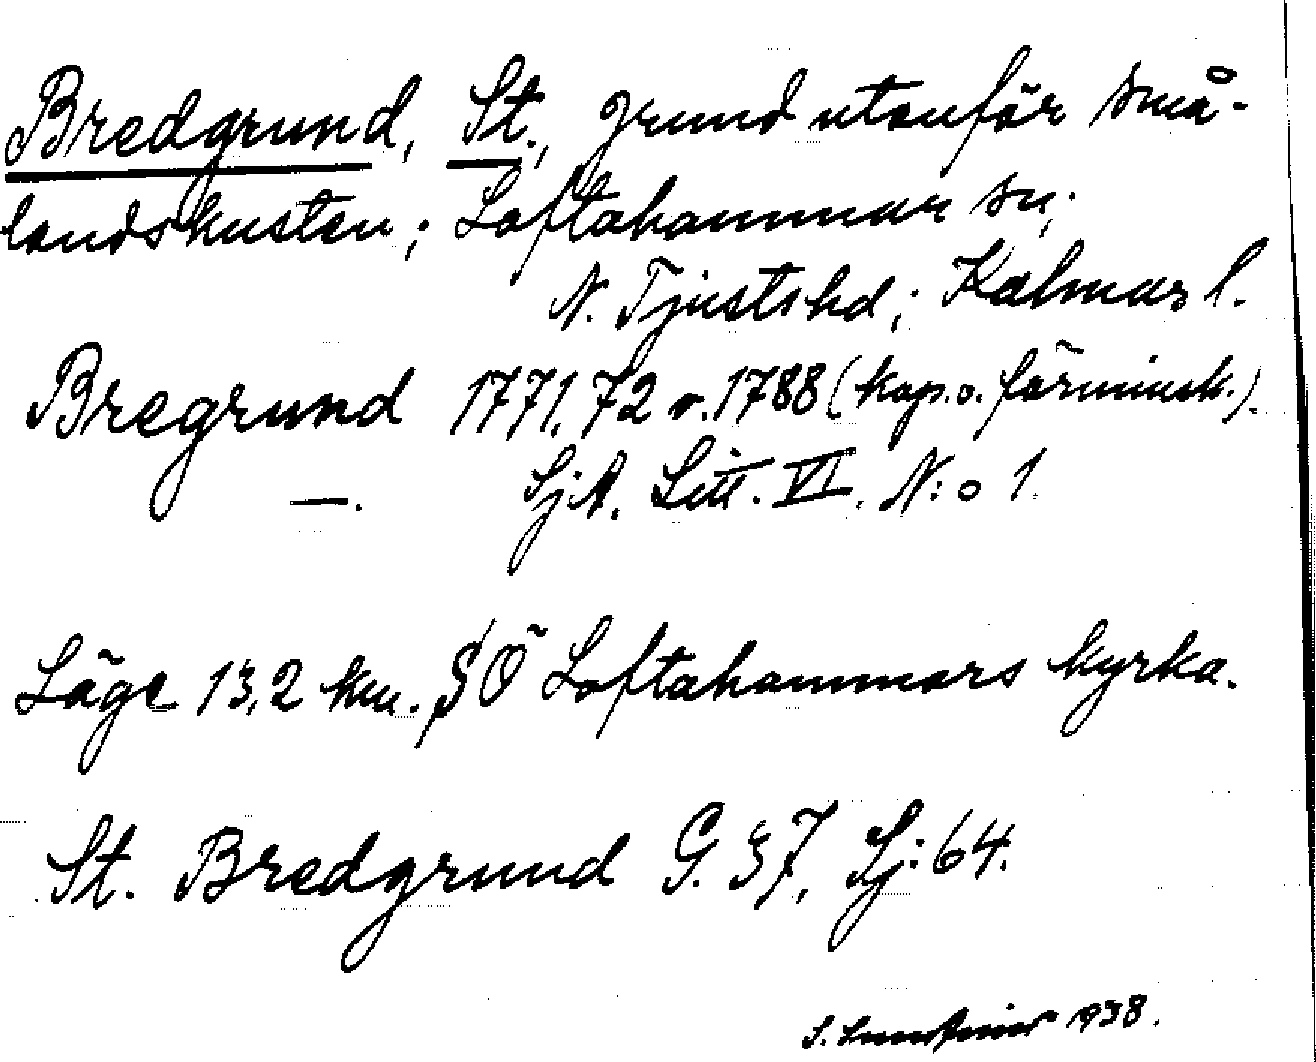 Bredgrund, St., grund utanför små-
landskusten; Loftahammar sn;
N. Tjusts hd; Kalmar l.
Bregrund 1771, 72 o. 1788 (kop. o. förminsk.).
—. SjA. Litt. VI. N:o 1.
Läge 13,2 km. SÖ Loftahammars kyrka.
St. Bredgrund G. 37, Sj: 64.
S. 1938.